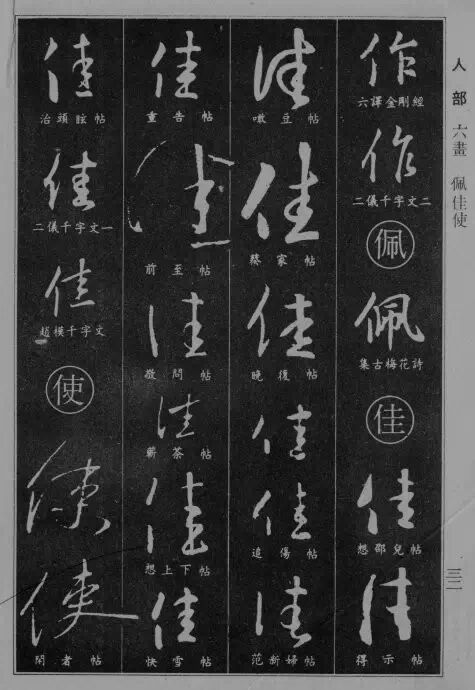 人部 六畫 佩佳使
三二
作
六譯金剛經
作
二儀千字文二
佩
佩
集古梅花詩
佳
佳
想邵兒帖
佳
得示帖
佳
噉豆帖
佳
蔡家帖
佳
晚復帖
佳
佳
追傷帖
佳
范新婦帖
佳
重告帖
佳
前至帖
佳
敬問帖
佳
蘄茶帖
佳
想上下帖
佳
快雪帖
佳
治頭眩帖
佳
二儀千字文一
佳
趙模千字文
使
使
使
閑者帖